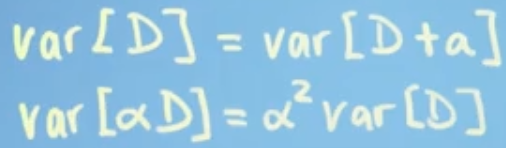 var[D] = var[D+a]
var[αD] = α² var[D]